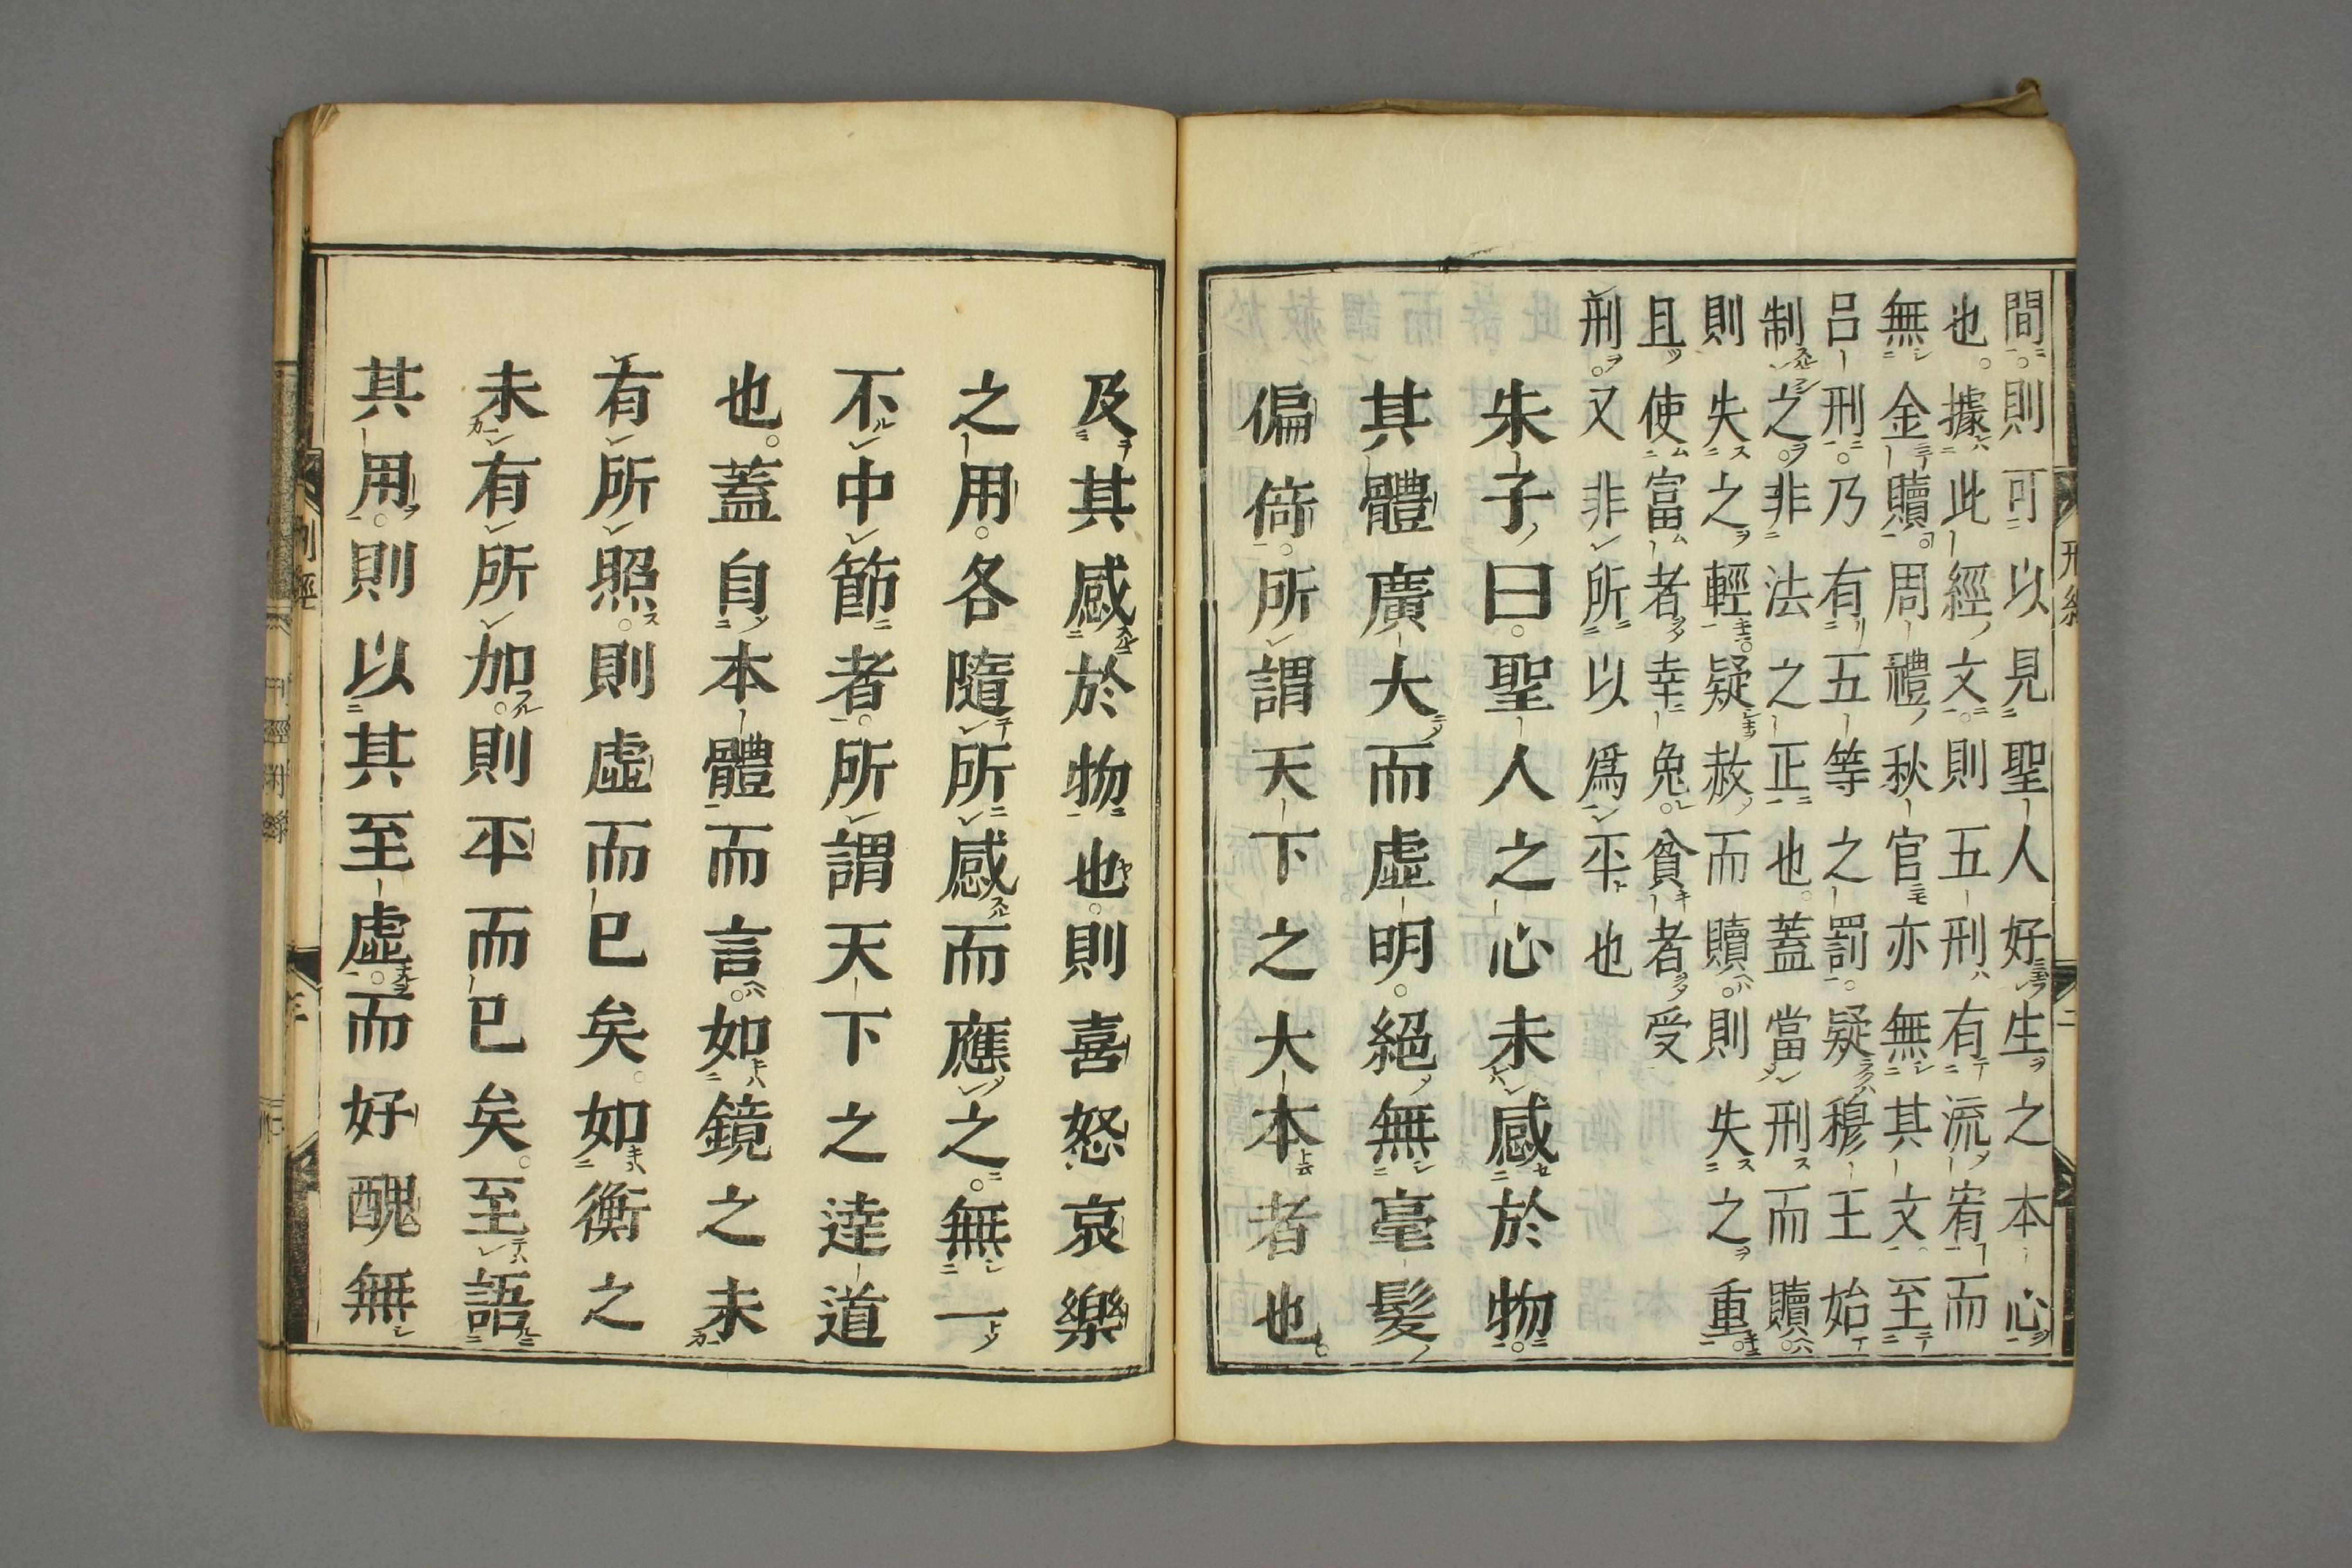 間則可以見聖人好生之本心
也據此經文則五刑有流宥而
無金贖周禮秋官亦無其文至
呂刑乃有五等之罰疑穆王始
制之非法之正也蓋當刑而贖
則失之輕疑赦而贖則失之重
且使富者幸免貧者受
刑又非所以爲平也
朱子曰聖人之心未感於物
其體廣大而虛明絕無毫髮
偏倚所謂天下之大本者也
刑經
二
及其感於物也則喜怒哀樂
之用各隨所感而應之無一
不中節者所謂天下之達道
也蓋自本體而言如鏡之未
有所照則虛而已矣如衡之
未有所加則平而已矣至語
其用則以其至虛而好醜無
刑經
三